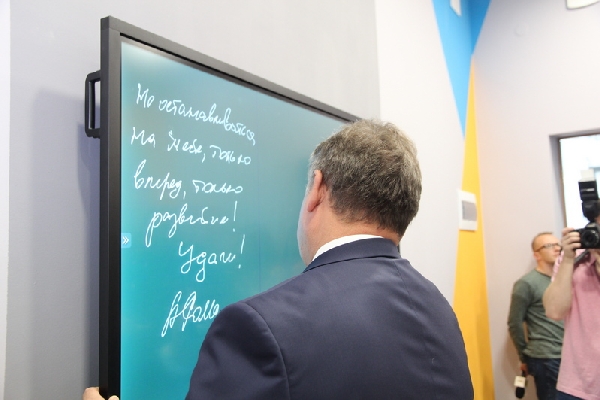 Не останавливаться
на тебе, только
вперед, только
развитие!
Удачи!